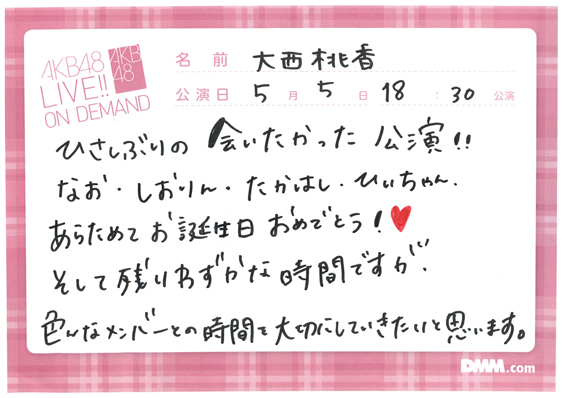 AKB48
LIVE!!
ON DEMAND
AKB
48
名前 大西桃香
公演日 5月5日 18:30 公演
ひさしぶりの 会いたかった 公演!!
なお・しおりん・たかはし・ひぃちゃん.
あらためて お誕生日 おめでとう!♥
そして残りわずかな時間ですが、
色んなメンバーとの時間を大切にしていきたいと思います。
DMM.com